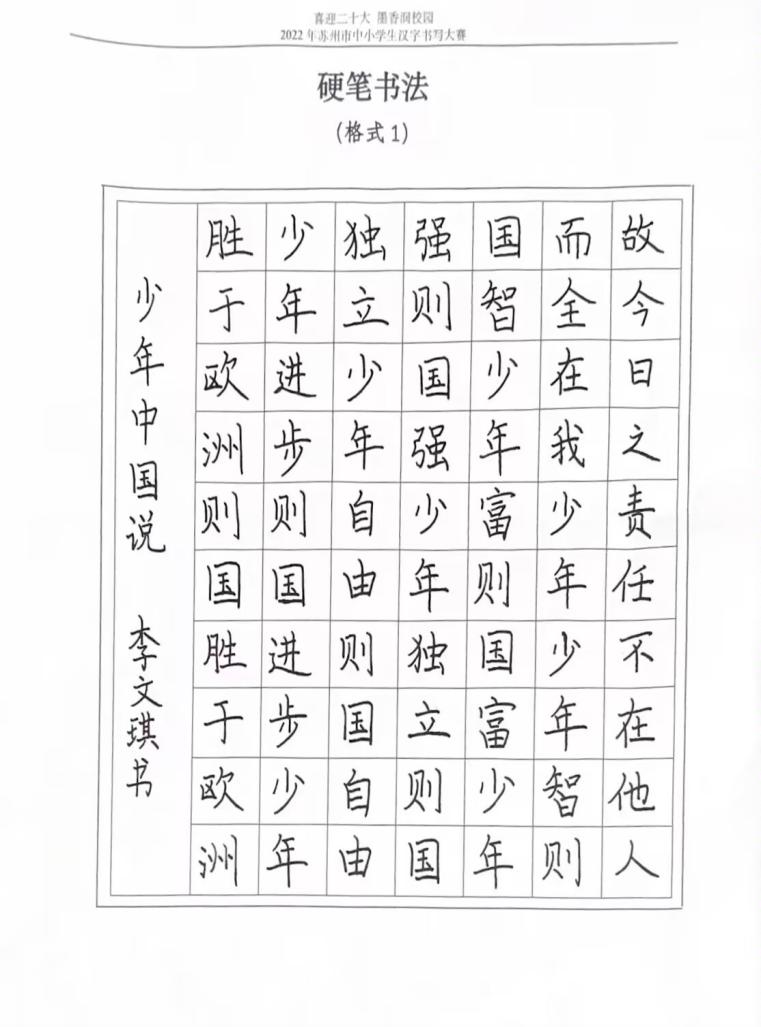 喜迎二十大 墨香润校园
2022年苏州市中小学生汉字书写大赛
硬笔书法
(格式1)
故今日之责任不在他人
而全在我少年少年智则
国智少年富则国富少年
强则国强少年独立则国
独立少年自由则国自由
少年进步则国进步少年
胜于欧洲则国胜于欧洲
少年中国说 李文琪书